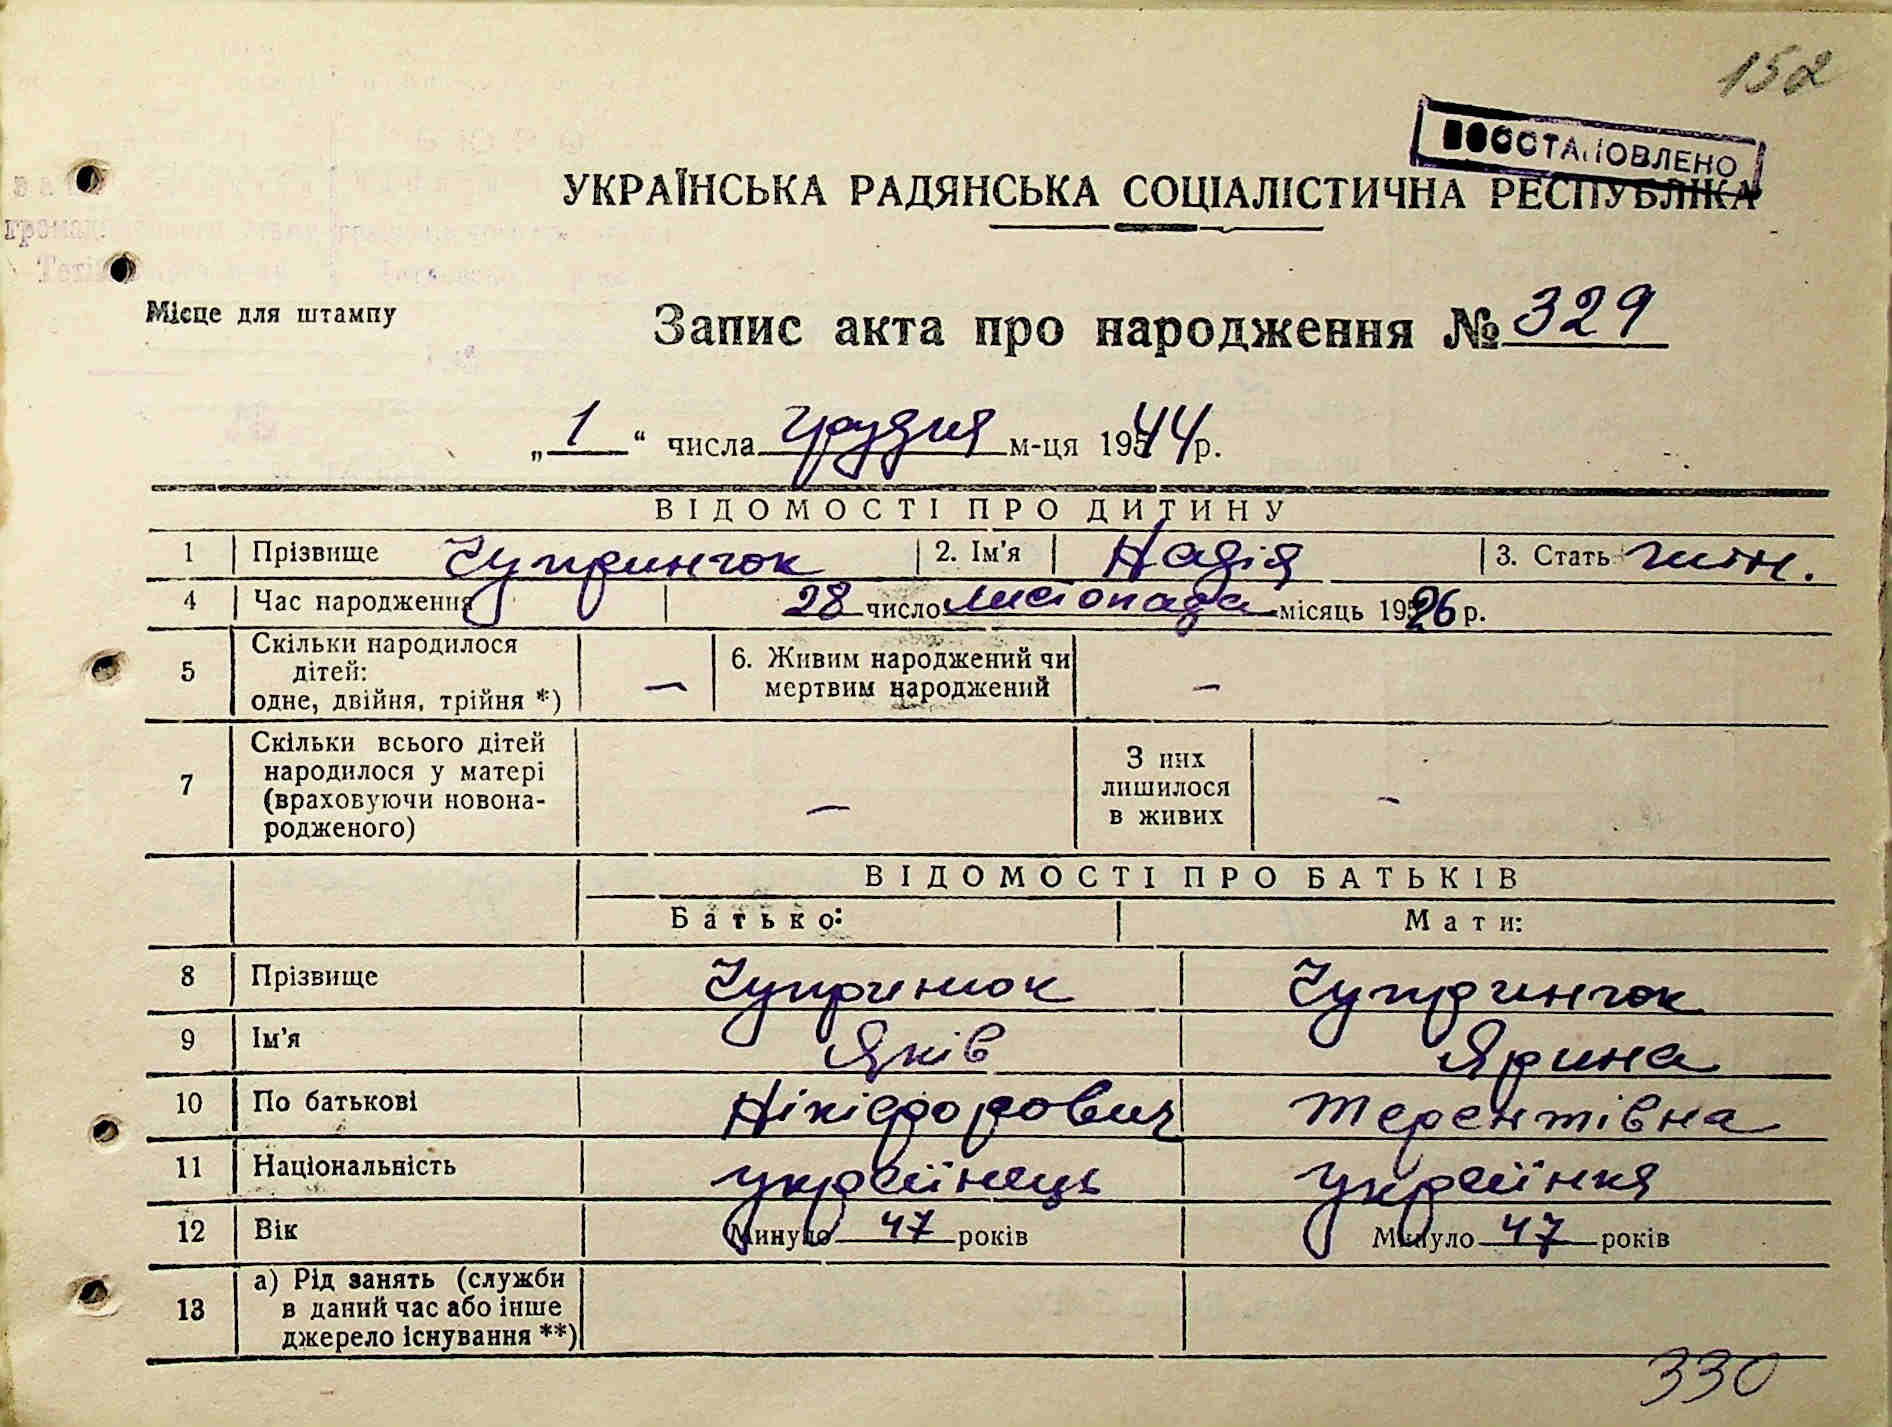 152
ВОССТАНОВЛЕНО
УКРАЇНСЬКА РАДЯНСЬКА СОЦІАЛІСТИЧНА РЕСПУБЛІКА
Місце для штампу
Запис акта про народження № 329
„ 1 “ числа грудня м-ця 1944 р.
ВІДОМОСТІ ПРО ДИТИНУ
1 Прізвище Чупринюк 2. Ім'я Надія 3. Стать жін.
4 Час народження 28 число листопада місяць 1926 р.
5 Скільки народилося дітей: одне, двійня, трійня *) — 6. Живим народжений чи мертвим народжений —
7 Скільки всього дітей народилося у матері (враховуючи новонародженого) — З них лишилося в живих —
ВІДОМОСТІ ПРО БАТЬКІВ
Батько: Мати:
8 Прізвище Чупринюк Чупринюк
9 Ім'я Яків Ярина
10 По батькові Нікіфорович Терентівна
11 Національність українець українка
12 Вік Минуло 47 років Минуло 47 років
13 а) Рід занять (служби в даний час або інше джерело існування **)
330